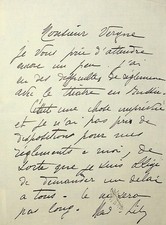 Monsieur Vergne
Je vous prie d'attendre
encore un peu. J'ai
eu des difficultés de règlement
avec le théâtre en
C'était une chose imprévue
et je n'ai pas pris de
dispositions pour mes
règlements à moi, de
sorte que je suis obligé
de demander un délai
à tous. Ce ne sera
pas long.